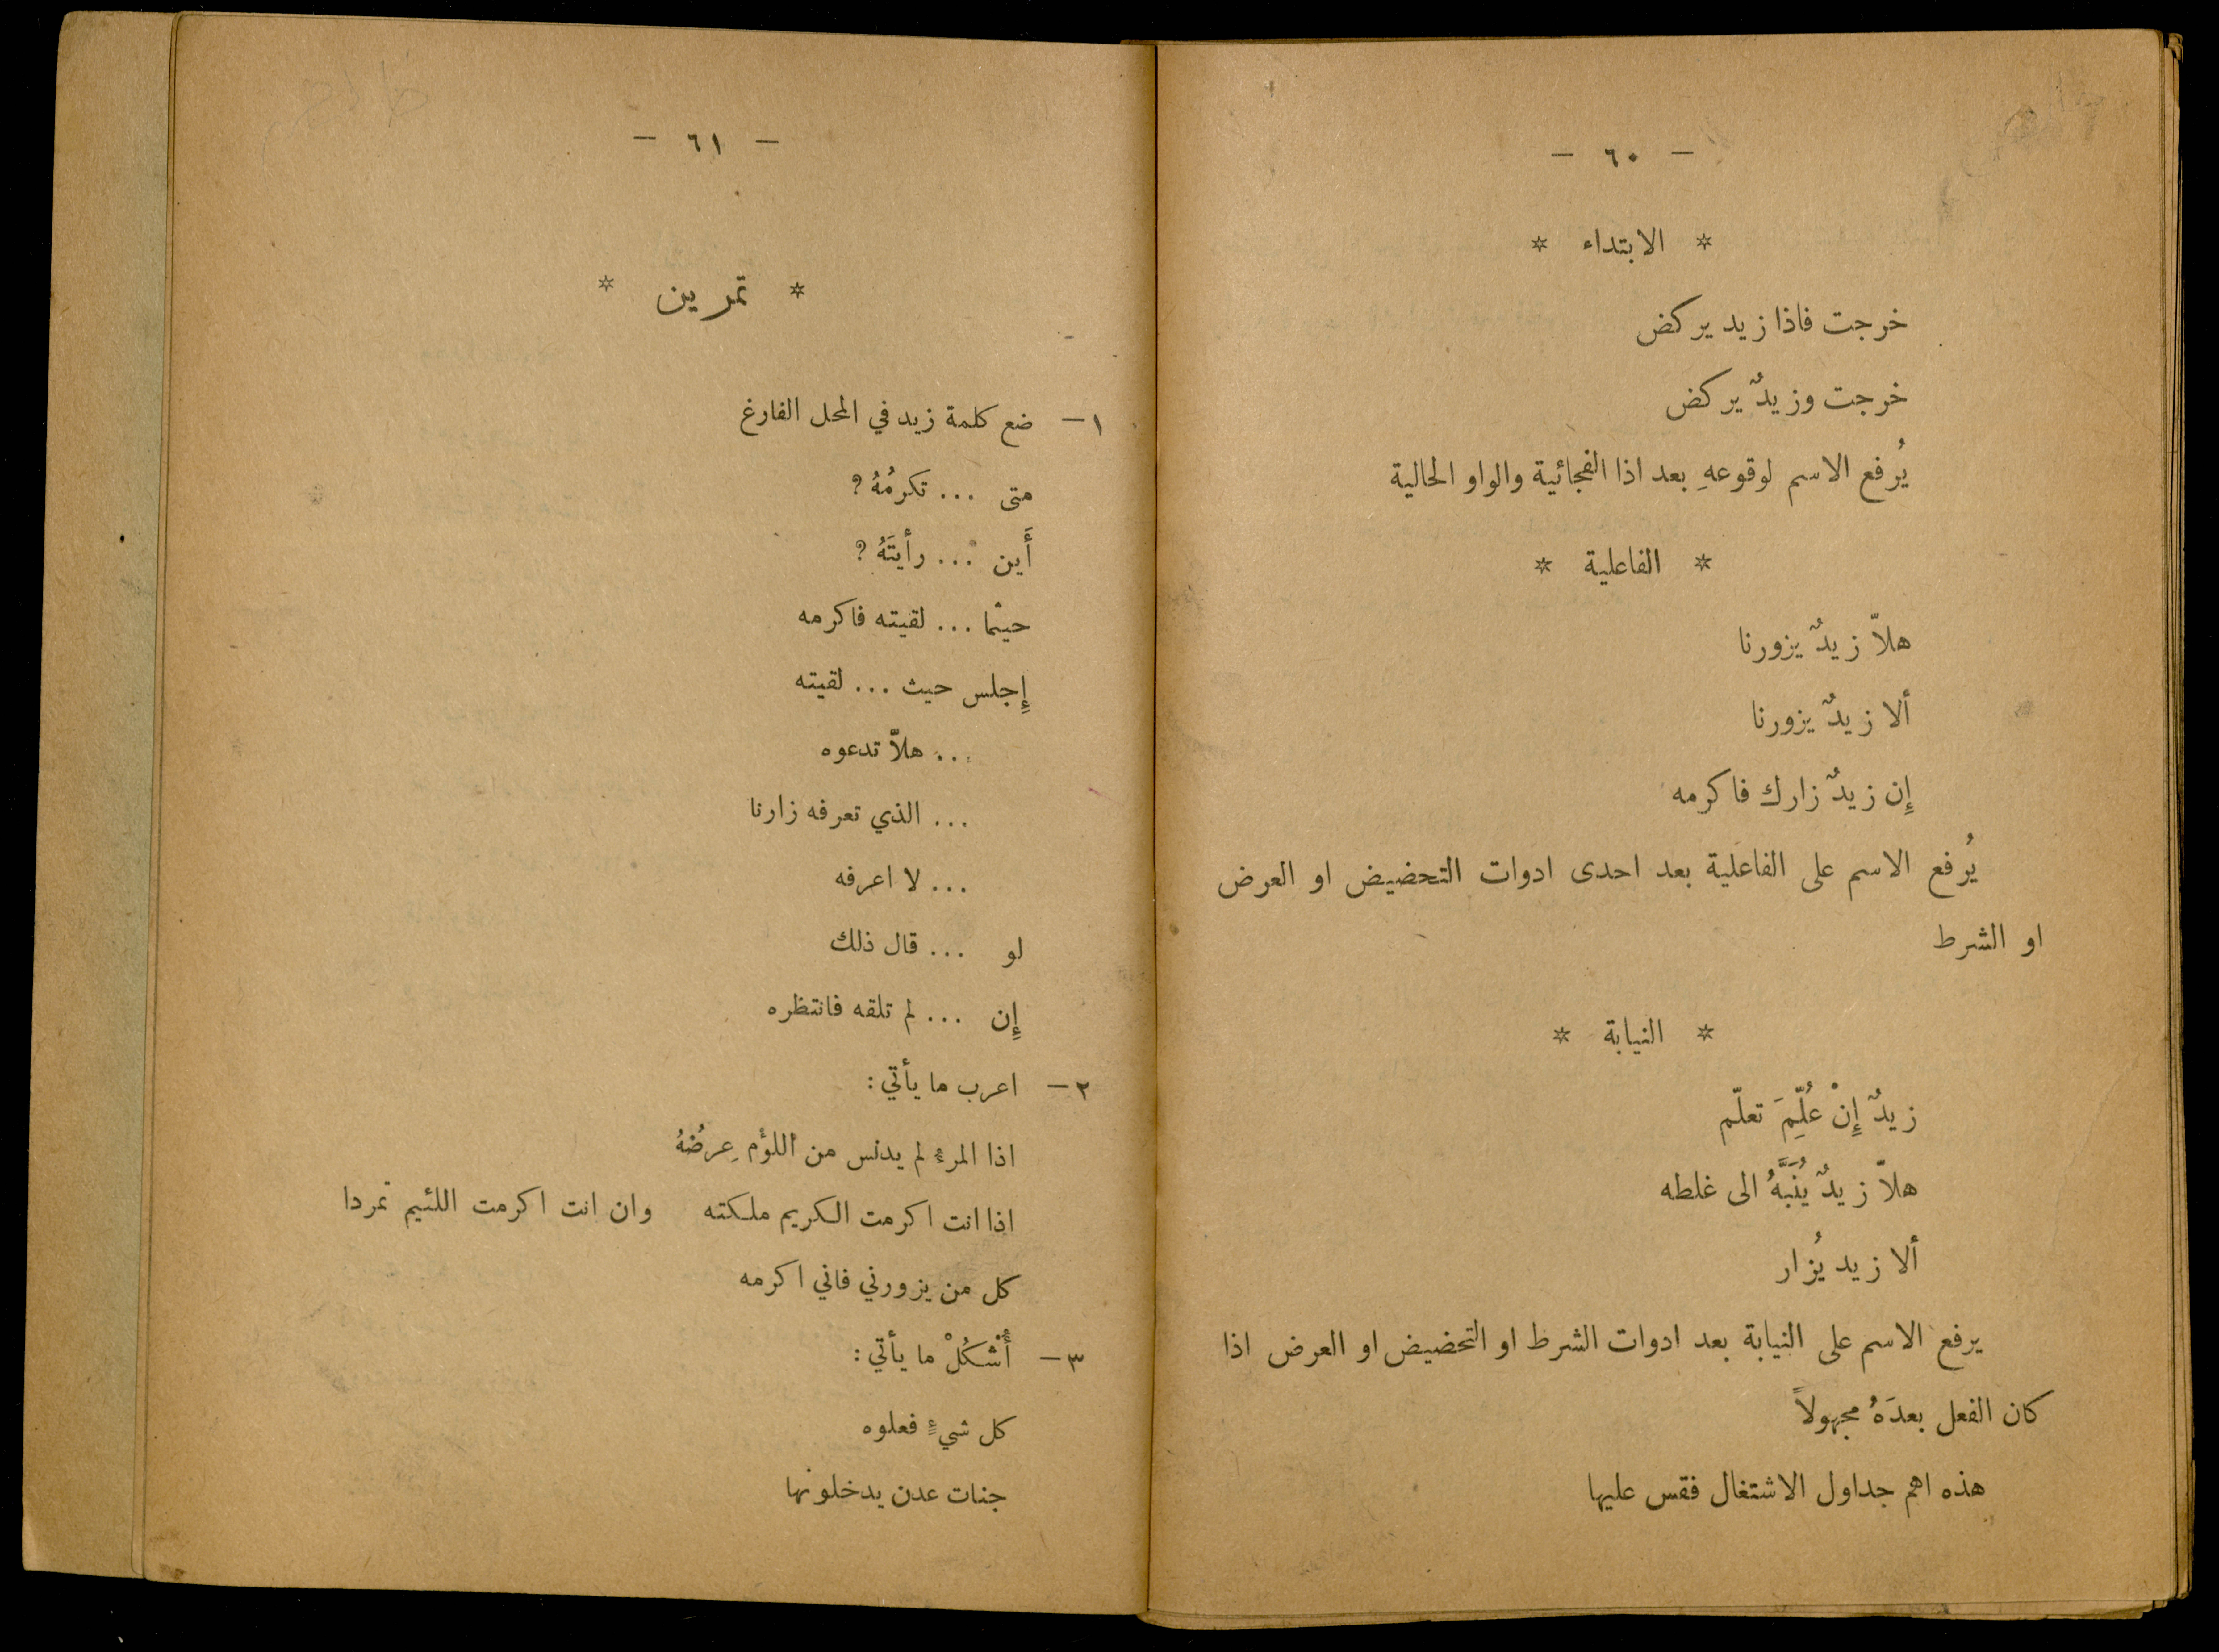 — ٦٠ —
* الابتداء *
خرجت فاذا زيد يركض
خرجت وزيدٌ يركض
يُرفع الاسم لوقوعهِ بعد اذا الفجائية والواو الحالية
* الفاعلية *
هلاّ زيدٌ يزورنا
ألا زيدٌ يزورنا
إِن زيدٌ زارك فاكرمه
يُرفع الاسم على الفاعلية بعد احدى ادوات التحضيض او العرض
او الشرط
* النيابة *
زيدٌ إِنْ عُلِّمَ تعلّم
هلاّ زيدٌ يُنَبَّهُ الى غلطه
ألا زيد يُزار
يرفع الاسم على النيابة بعد ادوات الشرط او التحضيض او العرض اذا
كان الفعل بعدَهُ مجهولاً
هذه اهم جداول الاشتغال فقس عليها
— ٦١ —
* تمرين *
١ — ضع كلمة زيد في المحل الفارغ
متى ... تكرمُهُ ؟
أَين ... رأيتَهُ ؟
حيثما ... لقيته فاكرمه
إِجلس حيث ... لقيته
... هلاّ تدعوه
... الذي تعرفه زارنا
... لا اعرفه
لو ... قال ذلك
إِن ... لم تلقه فانتظره
٢ — اعرب ما يأتي :
اذا المرء لم يدنس من اللؤم عِرضُهُ
اذا انت اكرمت الكريم ملكته وان انت اكرمت اللئيم تمردا
كل من يزورني فاني اكرمه
٣ — أُشْكُلْ ما يأتي :
كل شيءٍ فعلوه
جنات عدن يدخلونها